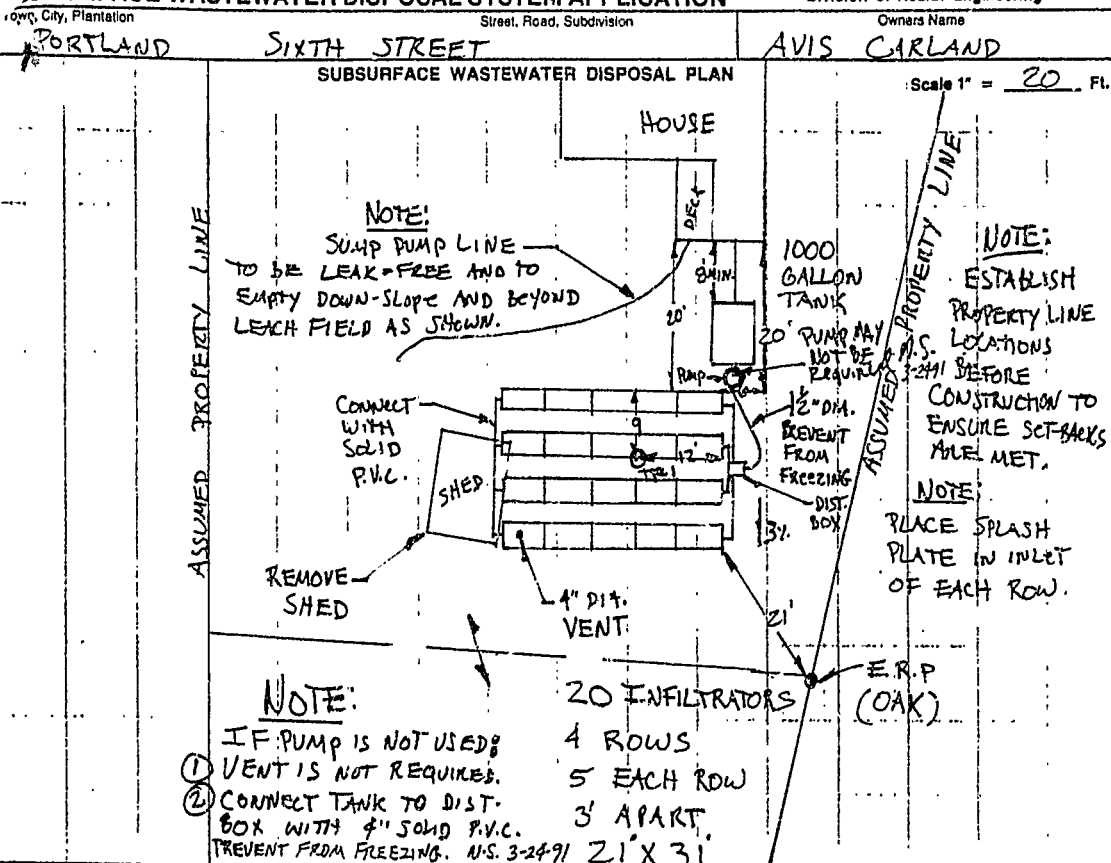 WASTEWATER DISPOSAL SYSTEM APPLICATION
Town, City, Plantation
Street, Road, Subdivision
Owners Name
PORTLAND
SIXTH STREET
AVIS CARLAND
SUBSURFACE WASTEWATER DISPOSAL PLAN
Scale 1" = 20 Ft.
HOUSE
DECK
ASSUMED PROPERTY LINE
ASSUMED PROPERTY LINE
NOTE:
SUMP PUMP LINE
TO BE LEAK-FREE AND TO
EMPTY DOWN-SLOPE AND BEYOND
LEACH FIELD AS SHOWN.
8' MIN.
20'
20'
1000
GALLON
TANK
PUMP MAY
NOT BE
REQUIRED
3-24-91
PUMP
NOTE:
ESTABLISH
PROPERTY LINE
LOCATIONS
BEFORE
CONSTRUCTION TO
ENSURE SET-BACKS
ARE MET.
CONNECT
WITH
SOLID
P.V.C.
1 1/2" DIA.
PREVENT
FROM
FREEZING
9
12'
DIST.
BOX
3%
SHED
NOTE:
PLACE SPLASH
PLATE IN INLET
OF EACH ROW.
REMOVE
SHED
4" DIA.
VENT
21'
E.R.P
(OAK)
NOTE:
IF PUMP IS NOT USED:
1 VENT IS NOT REQUIRED.
2 CONNECT TANK TO DIST.
BOX WITH 4" SOLID P.V.C.
PREVENT FROM FREEZING. N.S. 3-24-91
20 INFILTRATORS
4 ROWS
5 EACH ROW
3' APART
21' X 31'